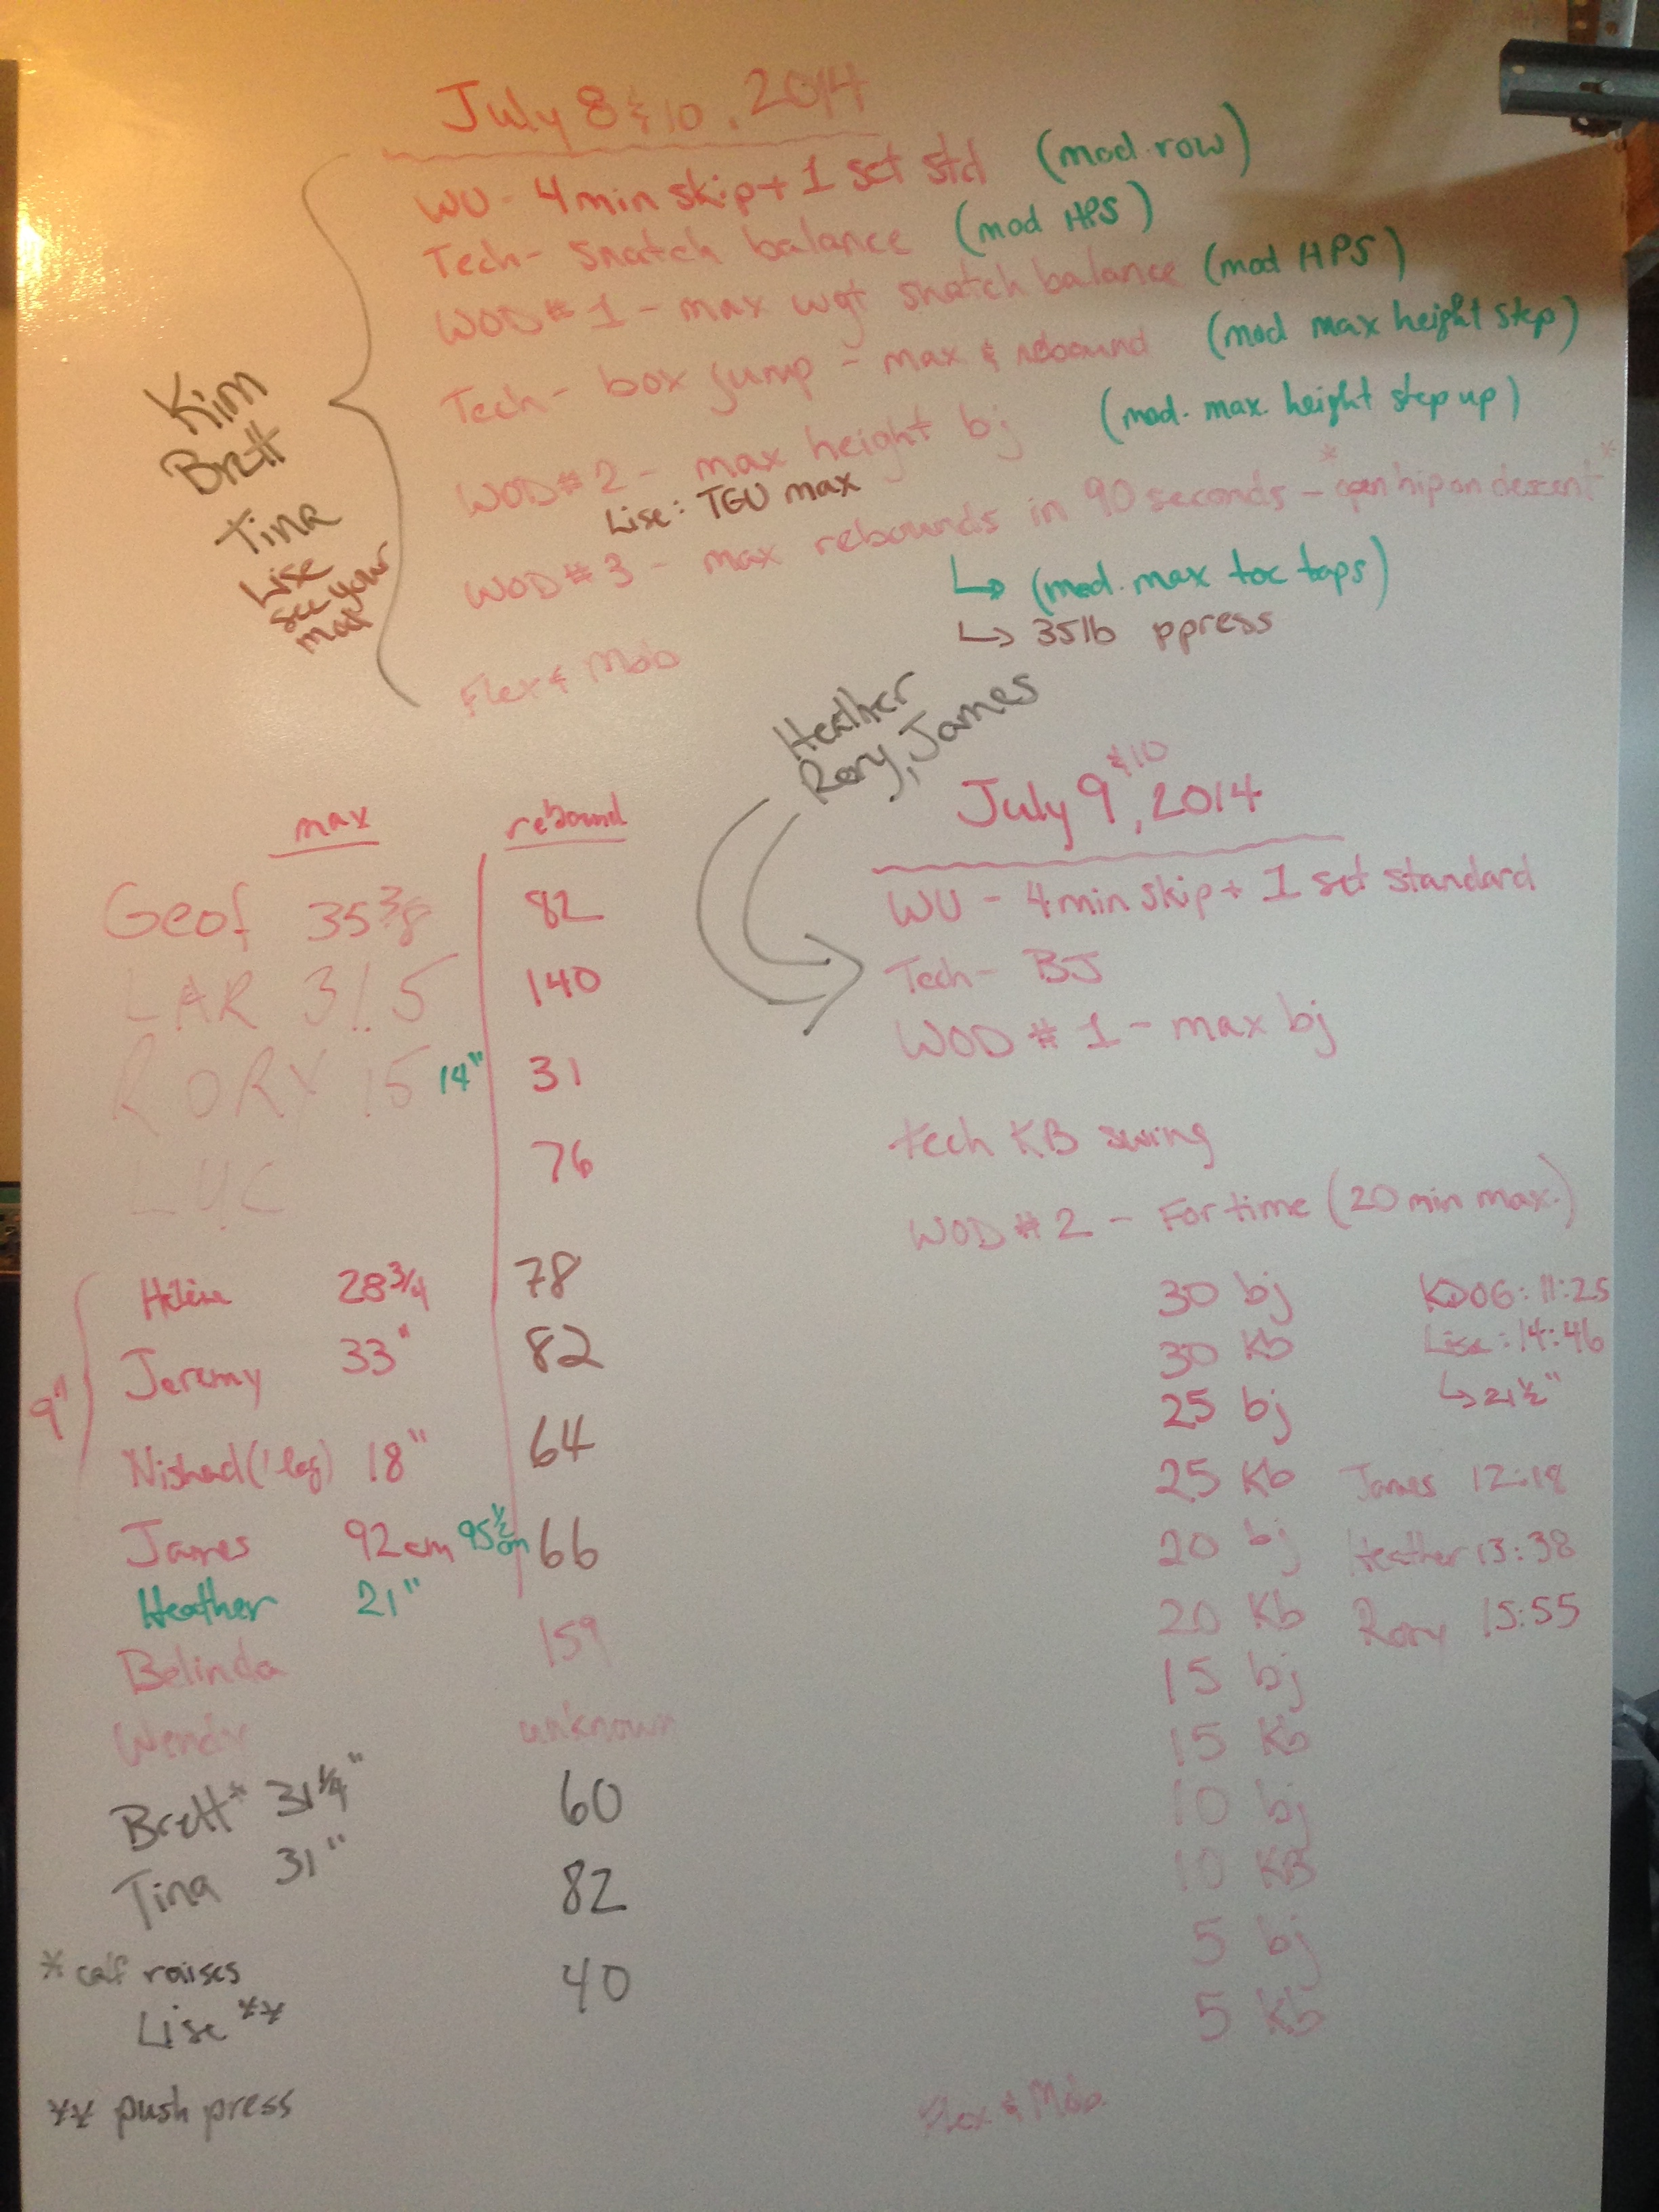 July 8 & 10, 2014
WU - 4 min skip + 1 set std (mod. row)
Tech - Snatch balance (mod HPS)
WOD # 1 - max wgt snatch balance (mod HPS)
Tech - box jump - max & rebound (mod max height step)
WOD # 2 - max height bj (mod. max. height step up)
Lise: TGU max
WOD # 3 - max rebounds in 90 seconds - *open hip on descent*
↳ (mod. max toe taps)
↳ 35lb ppress
Flex & Mob
Kim
Brett
Tina
Lise
see your
mod
Heather
Rory, James
max rebound
Geof 35 3/8 82
LAR 31.5 140
RORY 15 14" 31
LUC 76
9"
Hélène 28 3/4 78
Jeremy 33" 82
Nishad (1 leg) 18" 64
James 92cm 95 1/2 cm 66
Heather 21"
Belinda 159
Wendy unknown
Brett* 31 1/4" 60
Tina 31" 82
* calf raises
Lise ** 40
** push press
July 9 & 10, 2014
WU - 4 min skip + 1 set standard
Tech - BJ
WOD # 1 - max bj
tech KB swing
WOD # 2 - For time (20 min max.)
30 bj KDOG: 11:25
30 Kb Lise: 14:46
25 bj ↳ 21 1/2"
25 Kb James 12:18
20 bj Heather 13:38
20 Kb Rory 15:55
15 bj
15 Kb
10 bj
10 KB
5 bj
5 Kb
Flex & Mob.